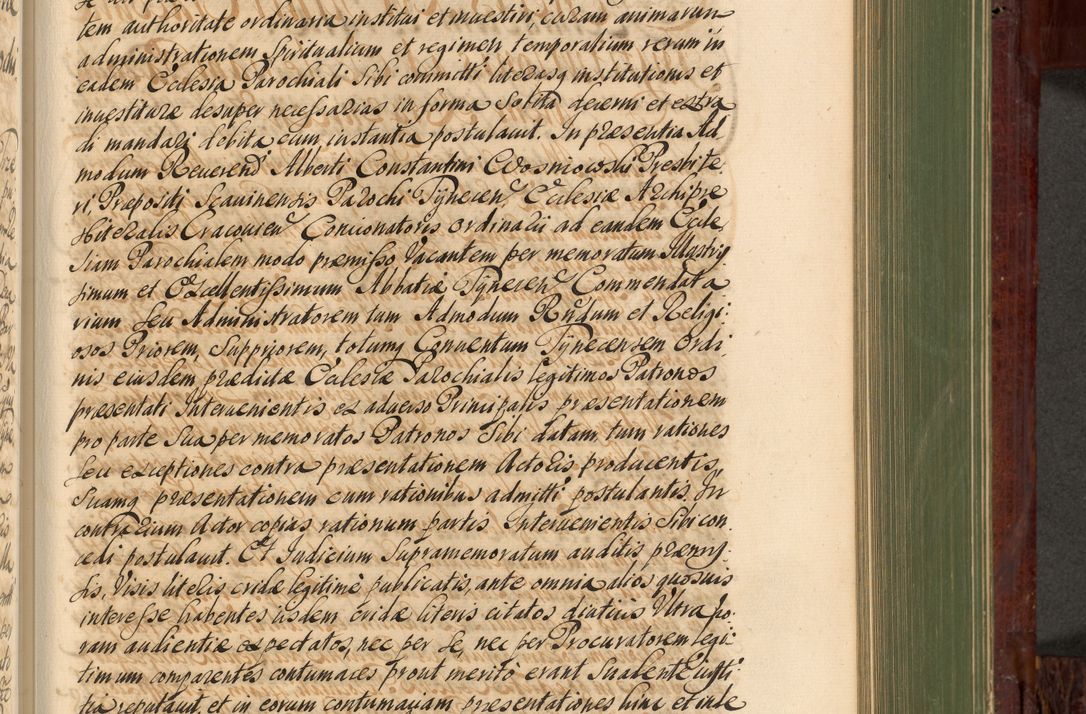 tem authoritate ordinaria institui et inuestiri, curam animarum
administrationem Spiritualium et regimen temporalium rerum in
eadem Ecclesia Parochiali Sibi committi literasq institutionis et
inuestituræ desuper necessarias in forma Solita decerni et extra
di mandari debita cum instantia postulauit. In præsentia Ad
modum Reuerendi Alberti Constantini Wosniowski Presbite
ri, Præpositi Scauinensis Parochi Tynecen Ecclesiæ Archipre
sbiteralis Cracouien Concionatoris ordinarii ad eandem Eccle,
siam Parochialem modo præmisso Vacantem per memoratum Illustris
simum et Excellentissimum Abbatiæ Tynecen Commendata
rium seu Administratorem tum Admodum Rndum et Religi:
osos Priorem, Suppriorem, totumq Conuentum Tynecensem ordi
nis eiusdem prædictæ Ecclesiæ Parochialis legitimos Patronos
præsentati Interuenientis ex aduerso Principalis præsentationem
pro parte Sua per memoratos Patronos Sibi datam, tum rationes
seu exceptiones contra præsentationem Actoris producentis,
Suamq præsentationem cum rationibus admitti postulantis. In
contrarium Actor copias rationum partis Interuenientis Sibi con
cedi postulauit. Et Iudicium Supramemoratum auditis præmis:
sis, Visis literis cridæ legitimè publicatis, ante omnia alios quosuis
interesse habentes iisdem cridæ literis citatos diutius Ultra ho:
ram audientiæ expectatos, nec per se, nec per Procuratorem legi:
timum comparentes contumaces prout meritò erant Sualente iusti
tia reputauit, et in eorum contumaciam præsentationes hinc et inde